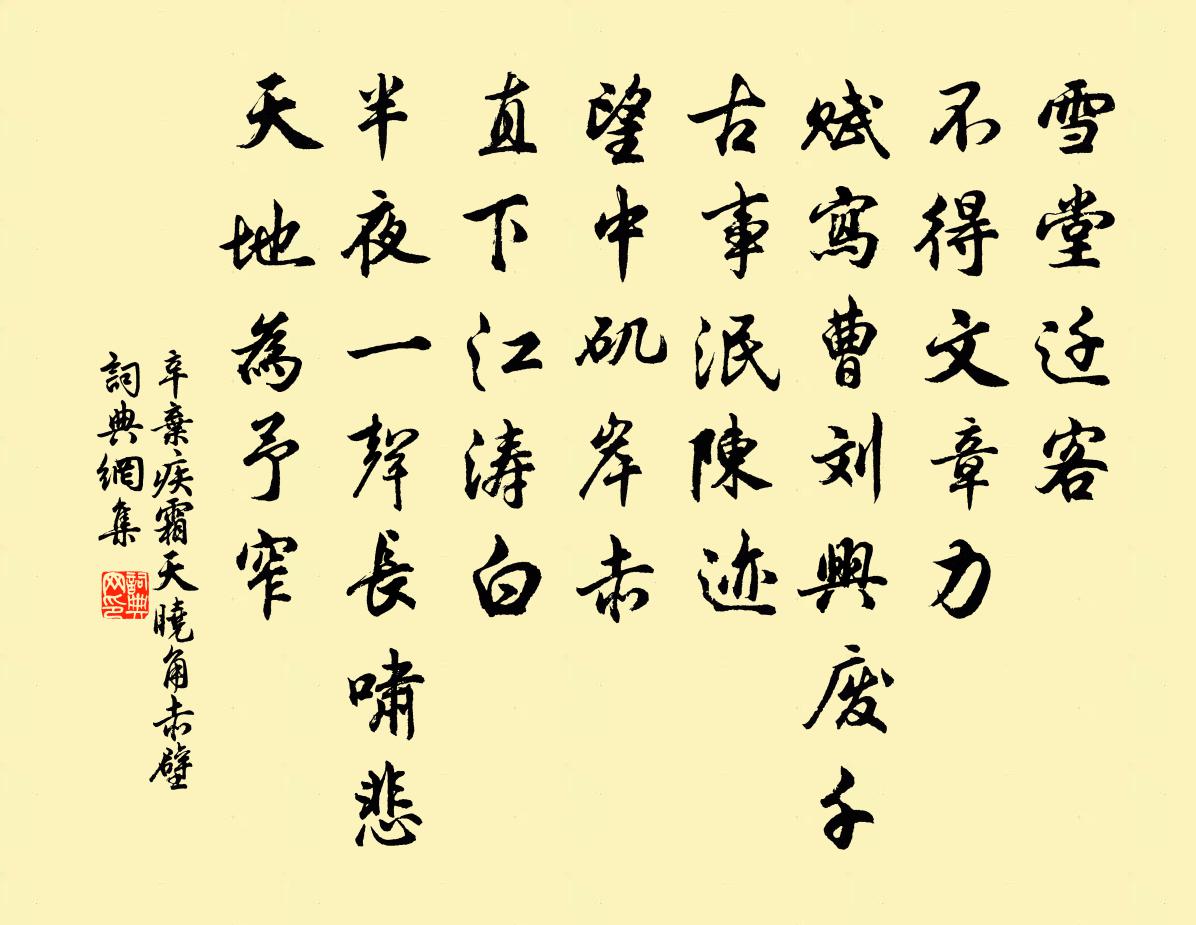 雪堂迁客
不得文章力
赋寫曹刘興废千
古事泯陳迹
望中矶岸赤
直下江涛白
半夜一聲長嘯悲
天地為予窄
辛棄疾霜天曉角赤壁
詞典網集
詞典网印